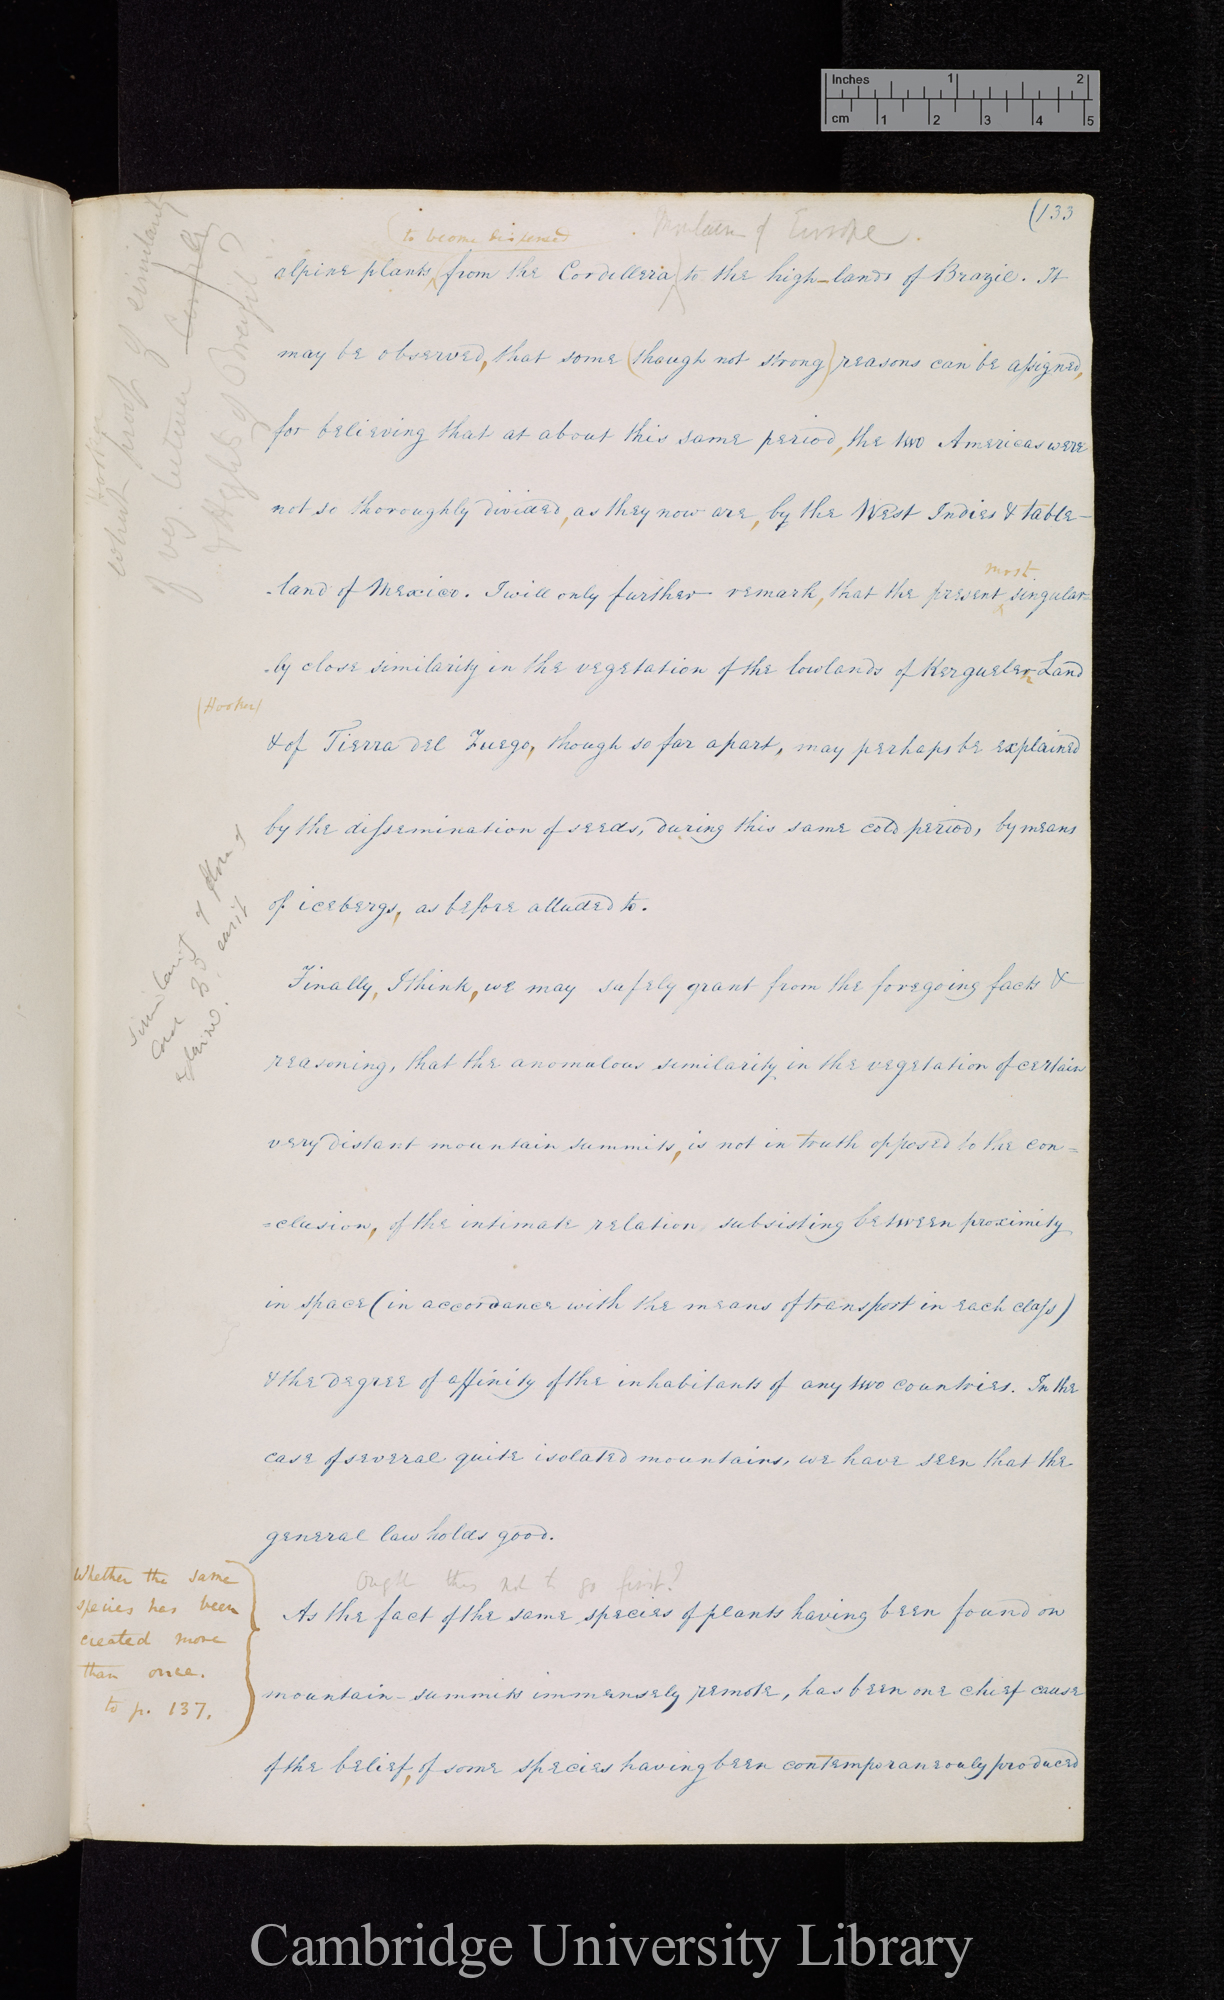 Inches 1 2
cm 1 2 3 4 5
(133
to become dispersed
of Europe.
alpine plants (from the Cordillera) to the high-lands of Brazil. It
may be observed, that some (though not strong) reasons can be assigned,
for believing that at about this same period, the two Americas were
not so thoroughly divided, as they now are, by the West Indies & table-
-land of Mexico. I will only further remark, that the present most singular-
-ly close similarity in the vegetation of the lowlands of Kerguelen Land
(Hooker)
& of Tierra del Fuego, though so far apart, may perhaps be explained
by the dissemination of seeds, during this same cold period, by means
of icebergs, as before alluded to.
Finally, I think, we may safely grant from the foregoing facts &
reasoning, that the anomalous similarity in the vegetation of certain
very distant mountain summits, is not in truth opposed to the con=
=clusion, of the intimate relation subsisting between proximity
in space (in accordance with the means of transport in each class)
& the degree of affinity of the inhabitants of any two countries. In the
case of several quite isolated mountains, we have seen that the
general law holds good.
Ought this not to go first?
Whether the same
species has been
created more
than once.
to p. 137.
As the fact of the same species of plants having been found on
mountain-summits immensely remote, has been one chief cause
of the belief, of some species having been contemporaneously produced
Hooker
What proof of similarity
of veg. between
Cambridge University Library